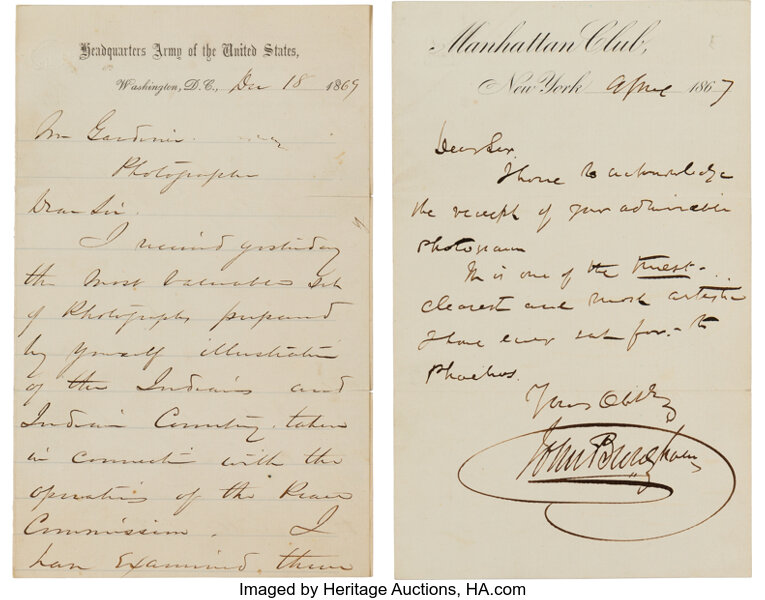 Headquarters Army of the United States,
Washington, D.C., Dec 18 1869
Mr Gardner
Photographer
Dear Sir.
I received yesterday
the most valuable Set
of Photographs, prepared
by yourself illustrative
of the Indians and
Indian Country, taken
in connection with the
operations of the Peace
Commission. I
have examined them
Manhattan Club,
New York April 1867
Dear Sir.
I have to acknowledge
the receipt of your admirable
photogram
It is one of the truest -
clearest and most artistic
I have ever sat for, - to
Phoebus.
Yours
John
Imaged by Heritage Auctions, HA.com